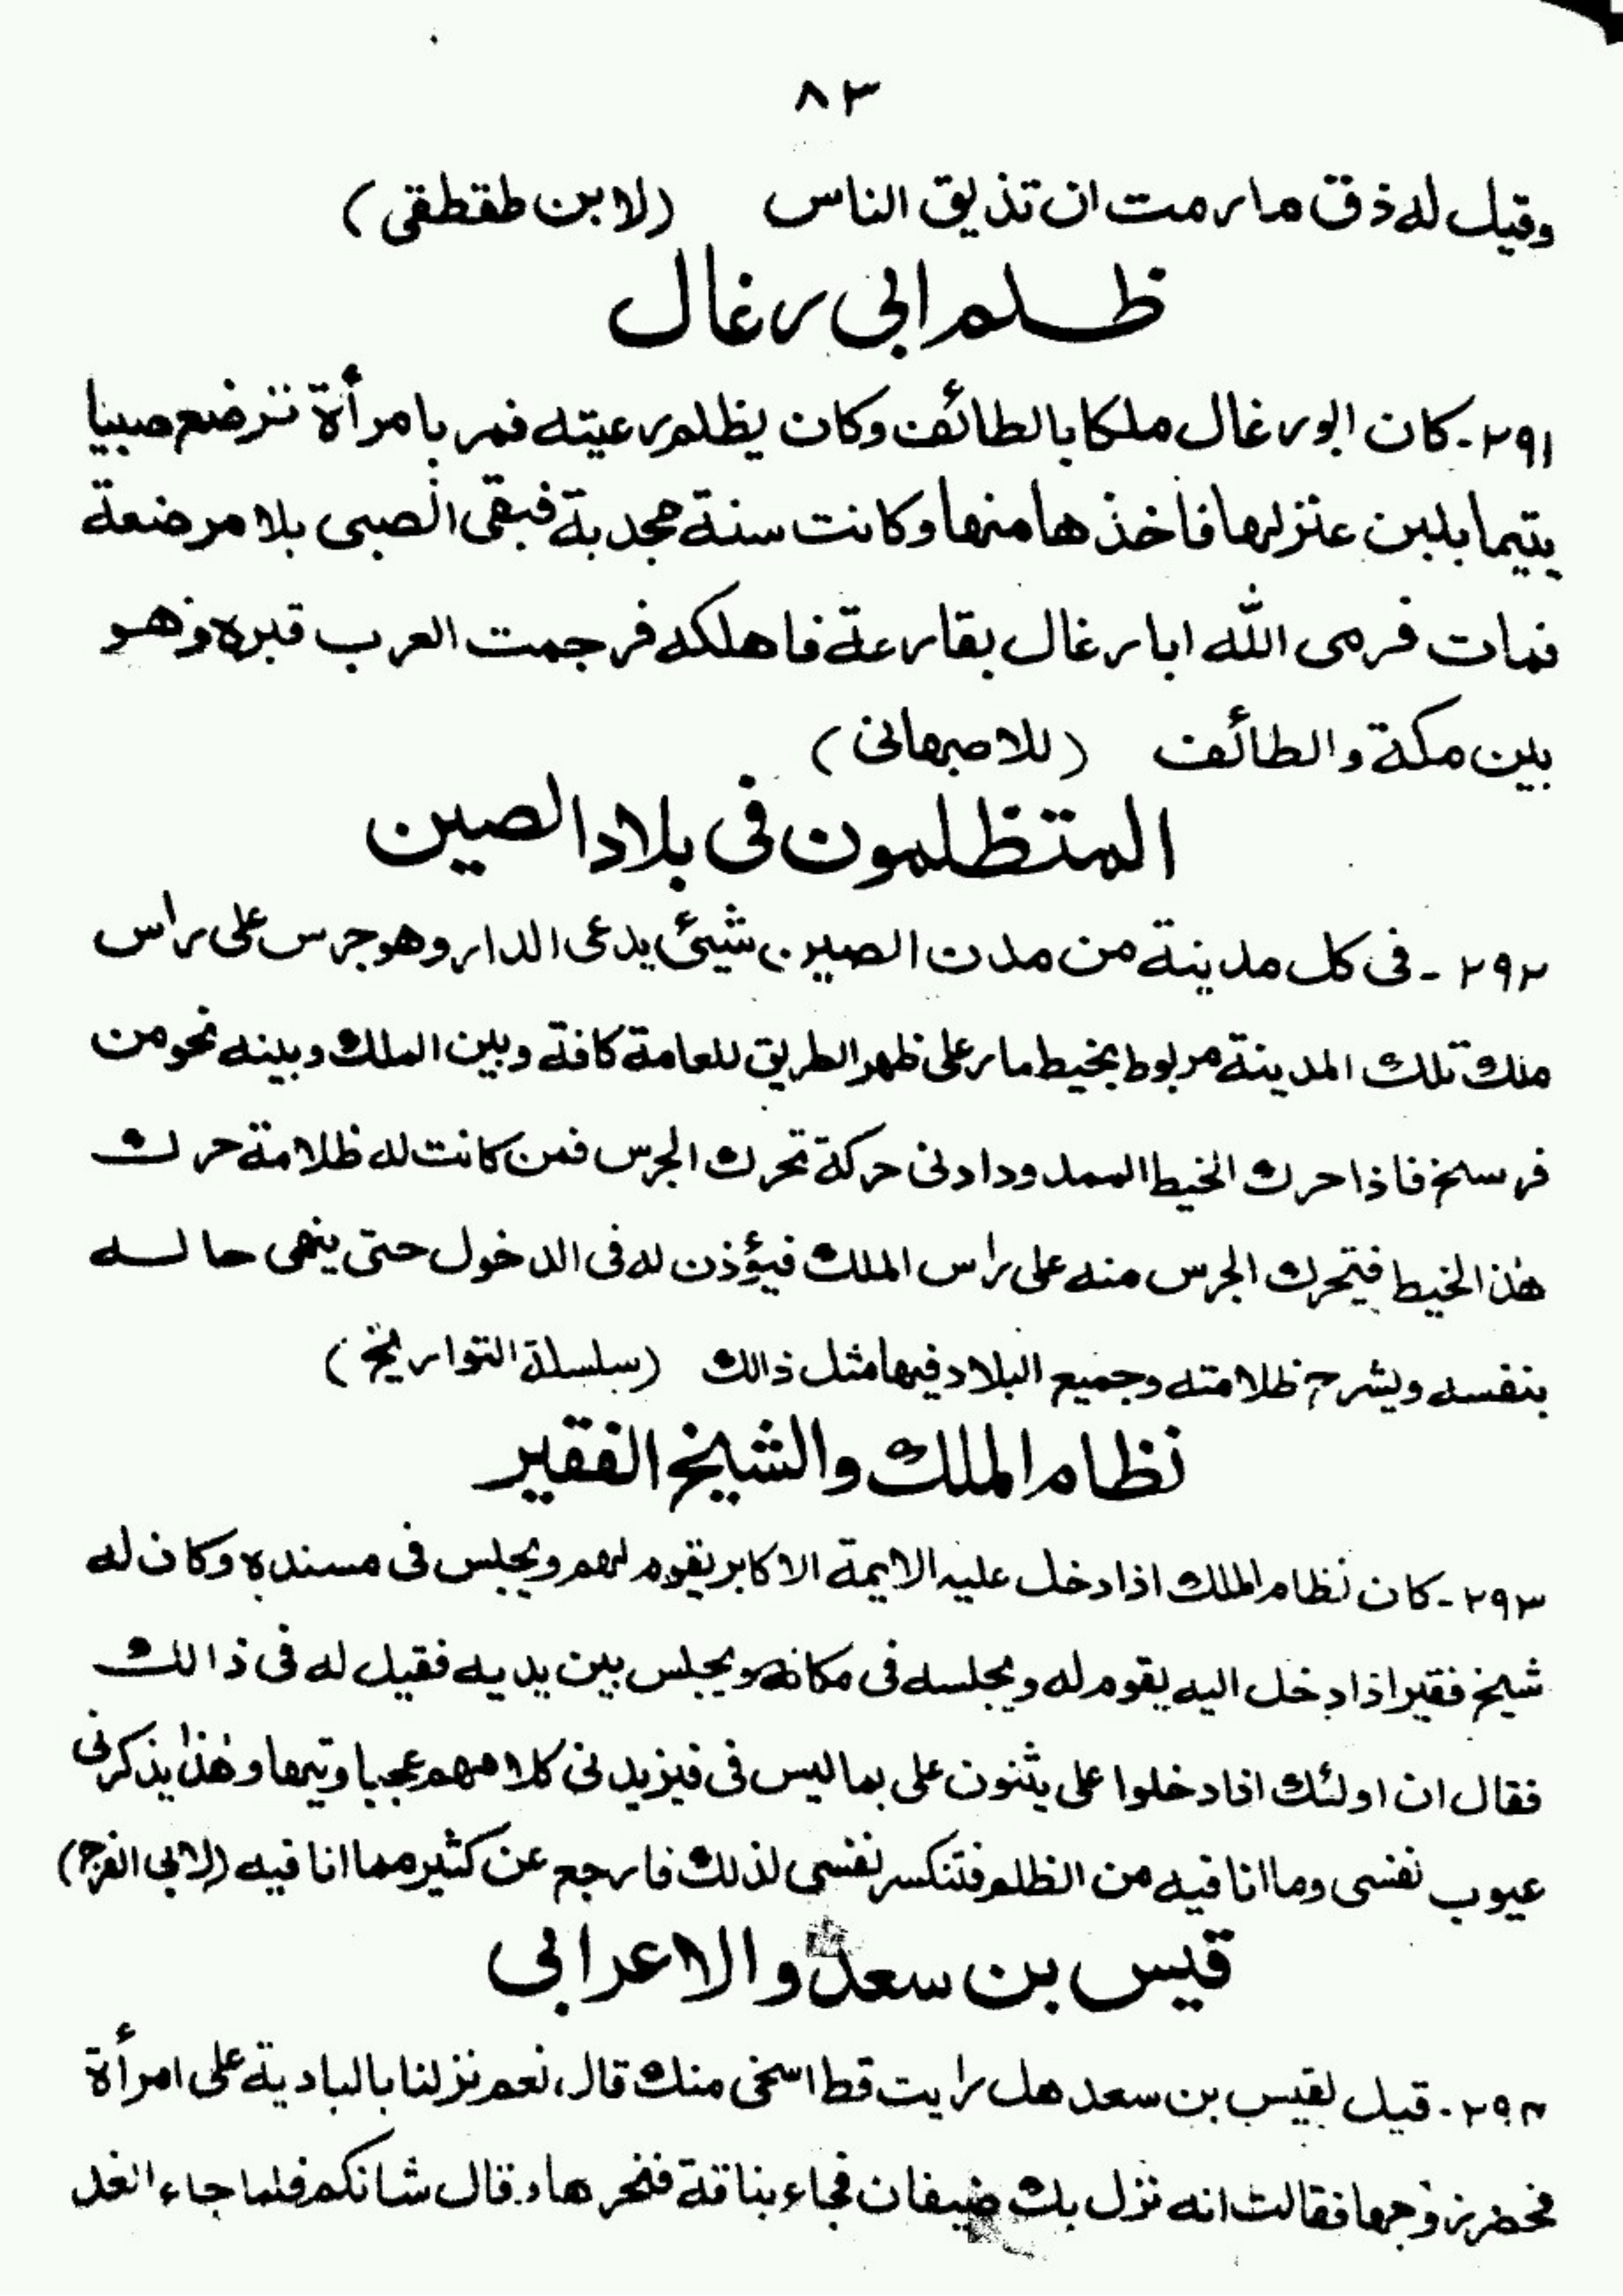 ٨٣
وقيل له ذق ما رمت ان تذيق الناس (لابن طقطقى)
ظلم ابى رغال
٢٩١-كان ابو رغال ملكا بالطائف وكان يظلم رعيته فمر بامرأة ترضع صبيا
يتيما بلبن عنز لها فاخذها منها وكانت سنة مجدبة فبقى الصبى بلا مرضعة
فمات فرمى الله ابا رغال بقارعة فاهلكه فرجمت العرب قبره وهو
بين مكة والطائف (للاصبهانى)
المتظلمون فى بلاد الصين
٢٩٢-فى كل مدينة من مدن الصين شيئ يدعى الدار وهو جرس على راس
ملك تلك المدينة مربوط بخيط مار على ظهر الطريق للعامة كافة وبين الملك وبينه نحو من
فرسخ فاذا حرك الخيط الممدود ادنى حركة تحرك الجرس فمن كانت له ظلامة حرك
هٰذ الخيط فيتحرك الجرس منه على راس الملك فيؤذن له فى الدخول حتى ينهى حاله
بنفسه ويشرح ظلامته وجميع البلاد فيها مثل ذالك (سلسلة التواريخ)
نظام الملك والشيخ الفقير
٢٩٣-كان نظام الملك اذا دخل عليه الايمة الاكابر يقوم لهم ويجلس فى مسنده وكان له
شيخ فقير اذا دخل اليه يقوم له ويجلسه فى مكانه ويجلس بين يديه فقيل له فى ذالك
فقال ان اولئك اذا دخلوا على يثنون على بما ليس فى فيزيدنى كلامهم عجبا وتيها وهٰذا يذكرنى
عيوب نفسى وما انا فيه من الظلم فتنكسر نفسى لذلك فارجع عن كثير مما انا فيه (لابى الفرج)
قيس بن سعد والاعرابى
٢٩٤-قيل لقيس بن سعد هل رايت قط اسخى منك قال، نعم نزلنا بالبادية على امرأة
فحضر زوجها فقالت انه نزل بك ضيفان فجاء بناقة فنحرها وقال شانكم فلما جاء الغد